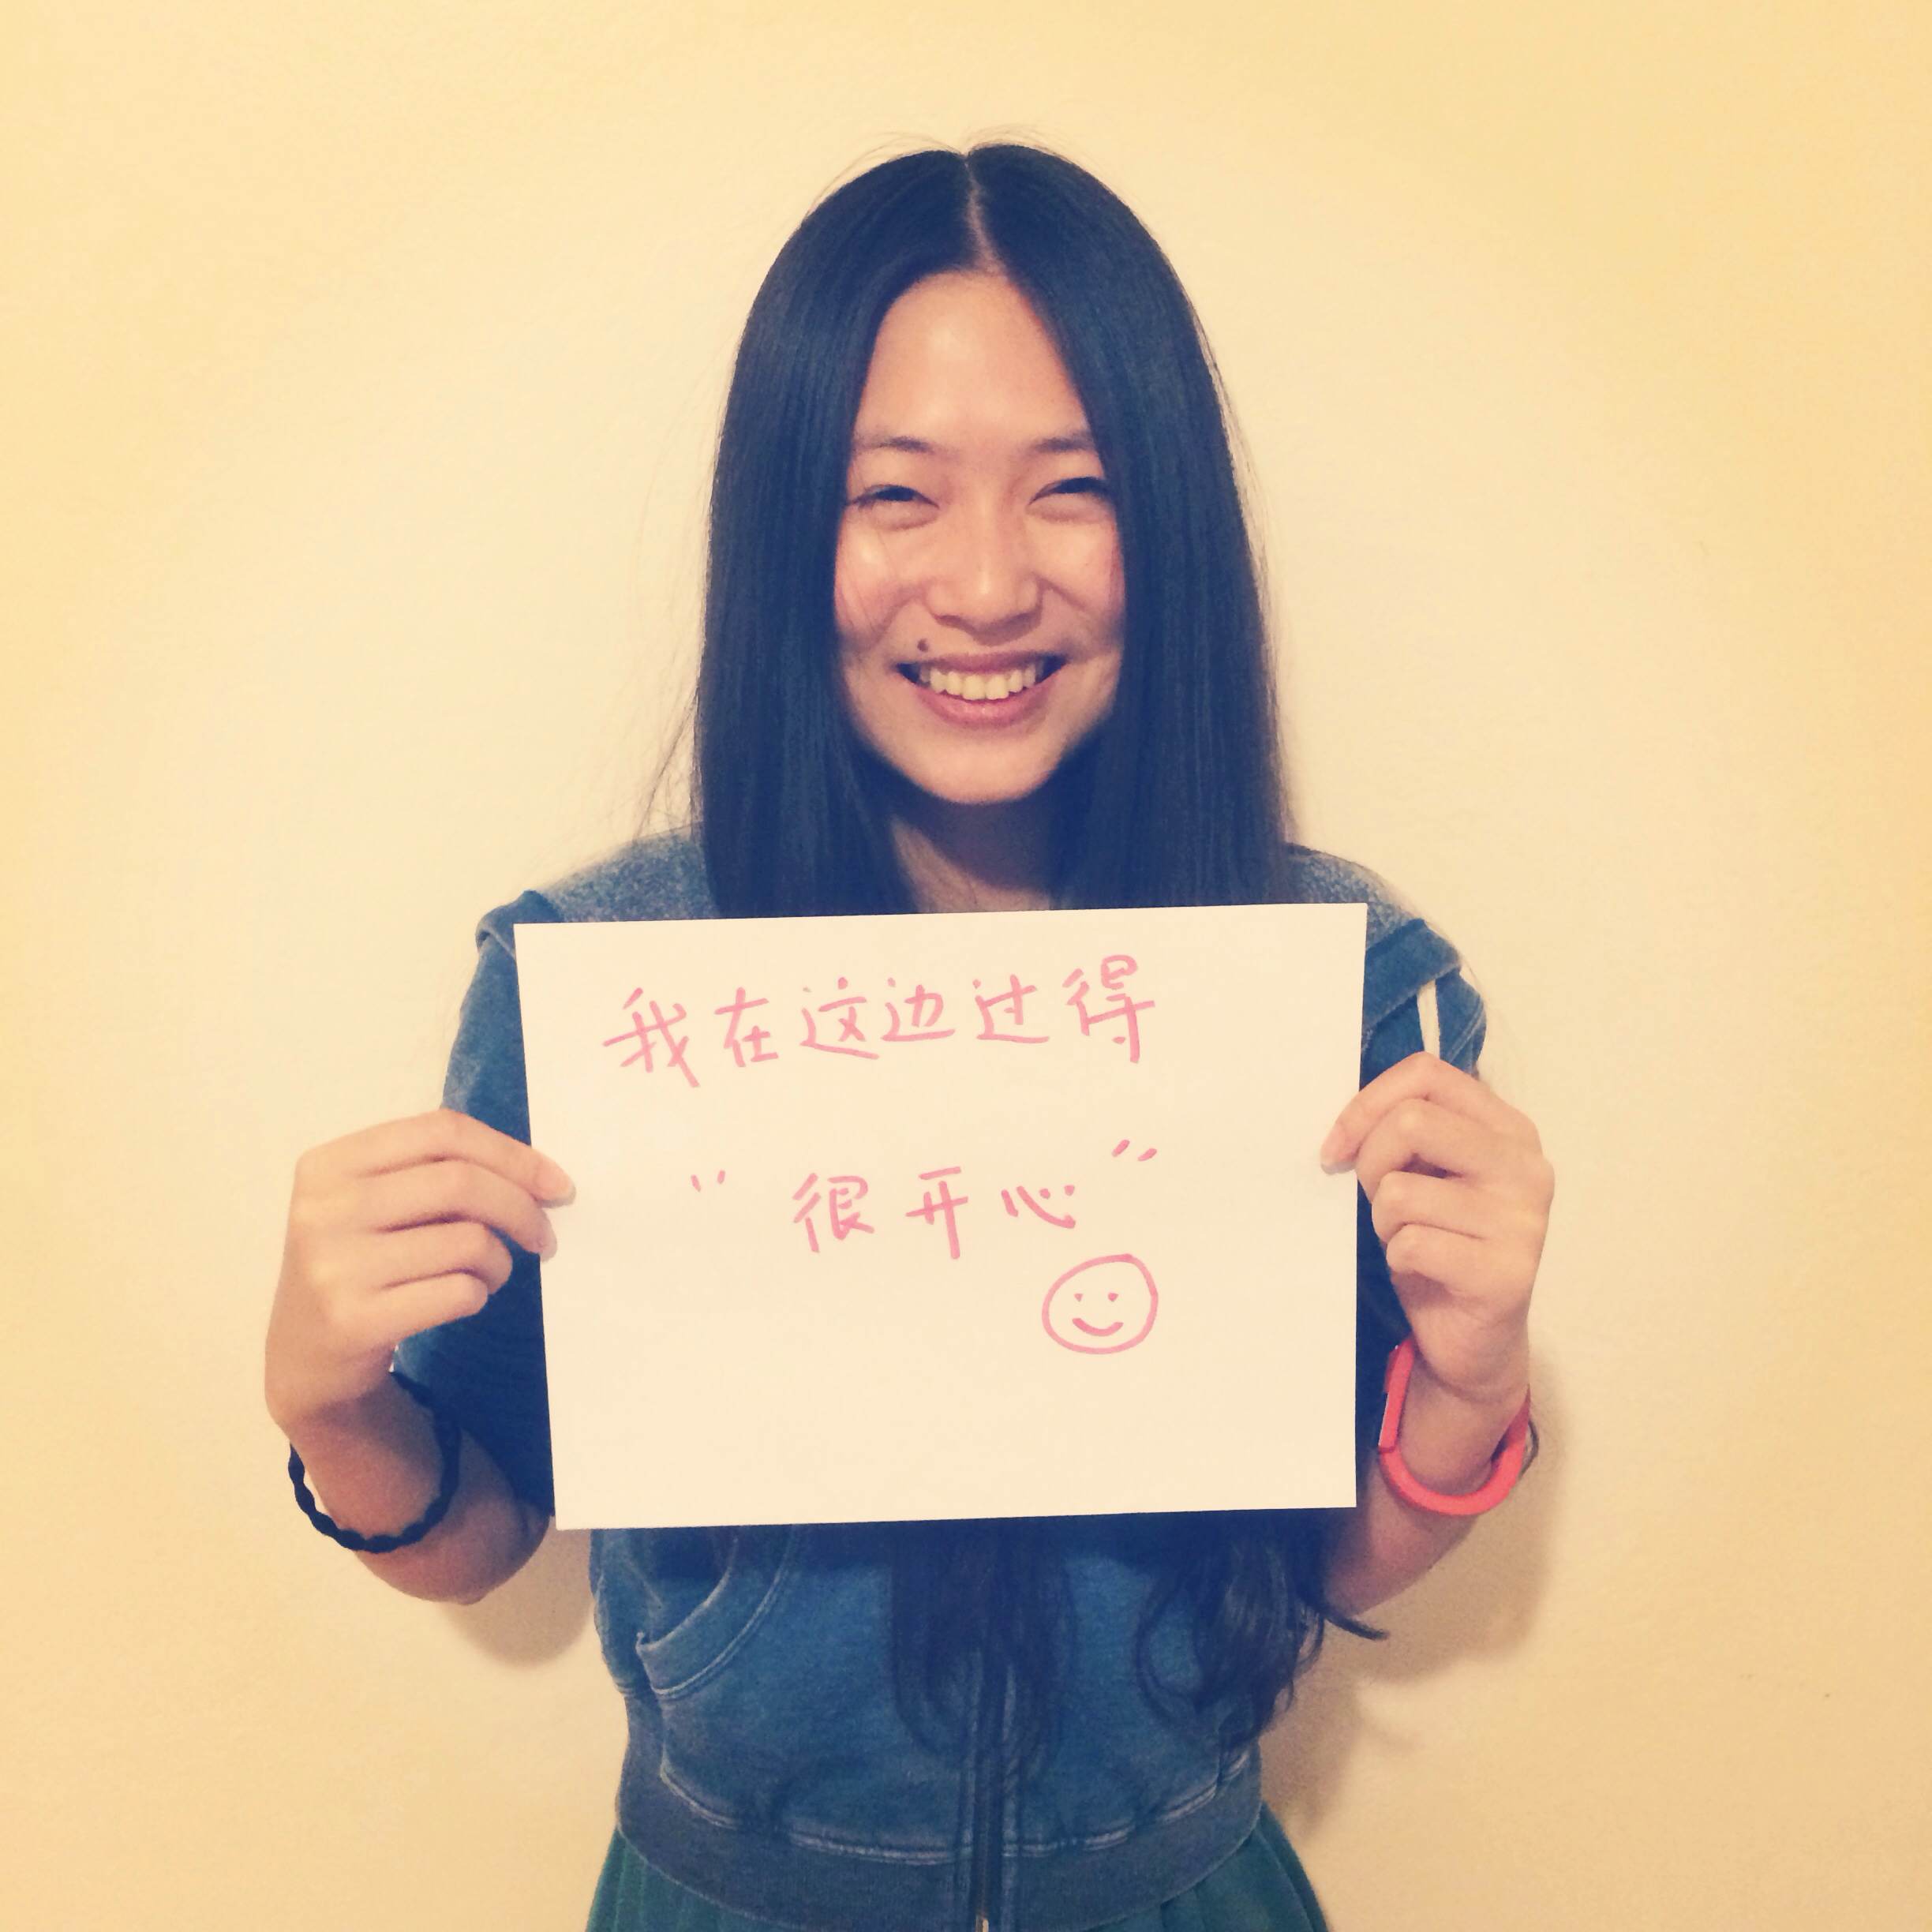 我在这边过得
“很开心”